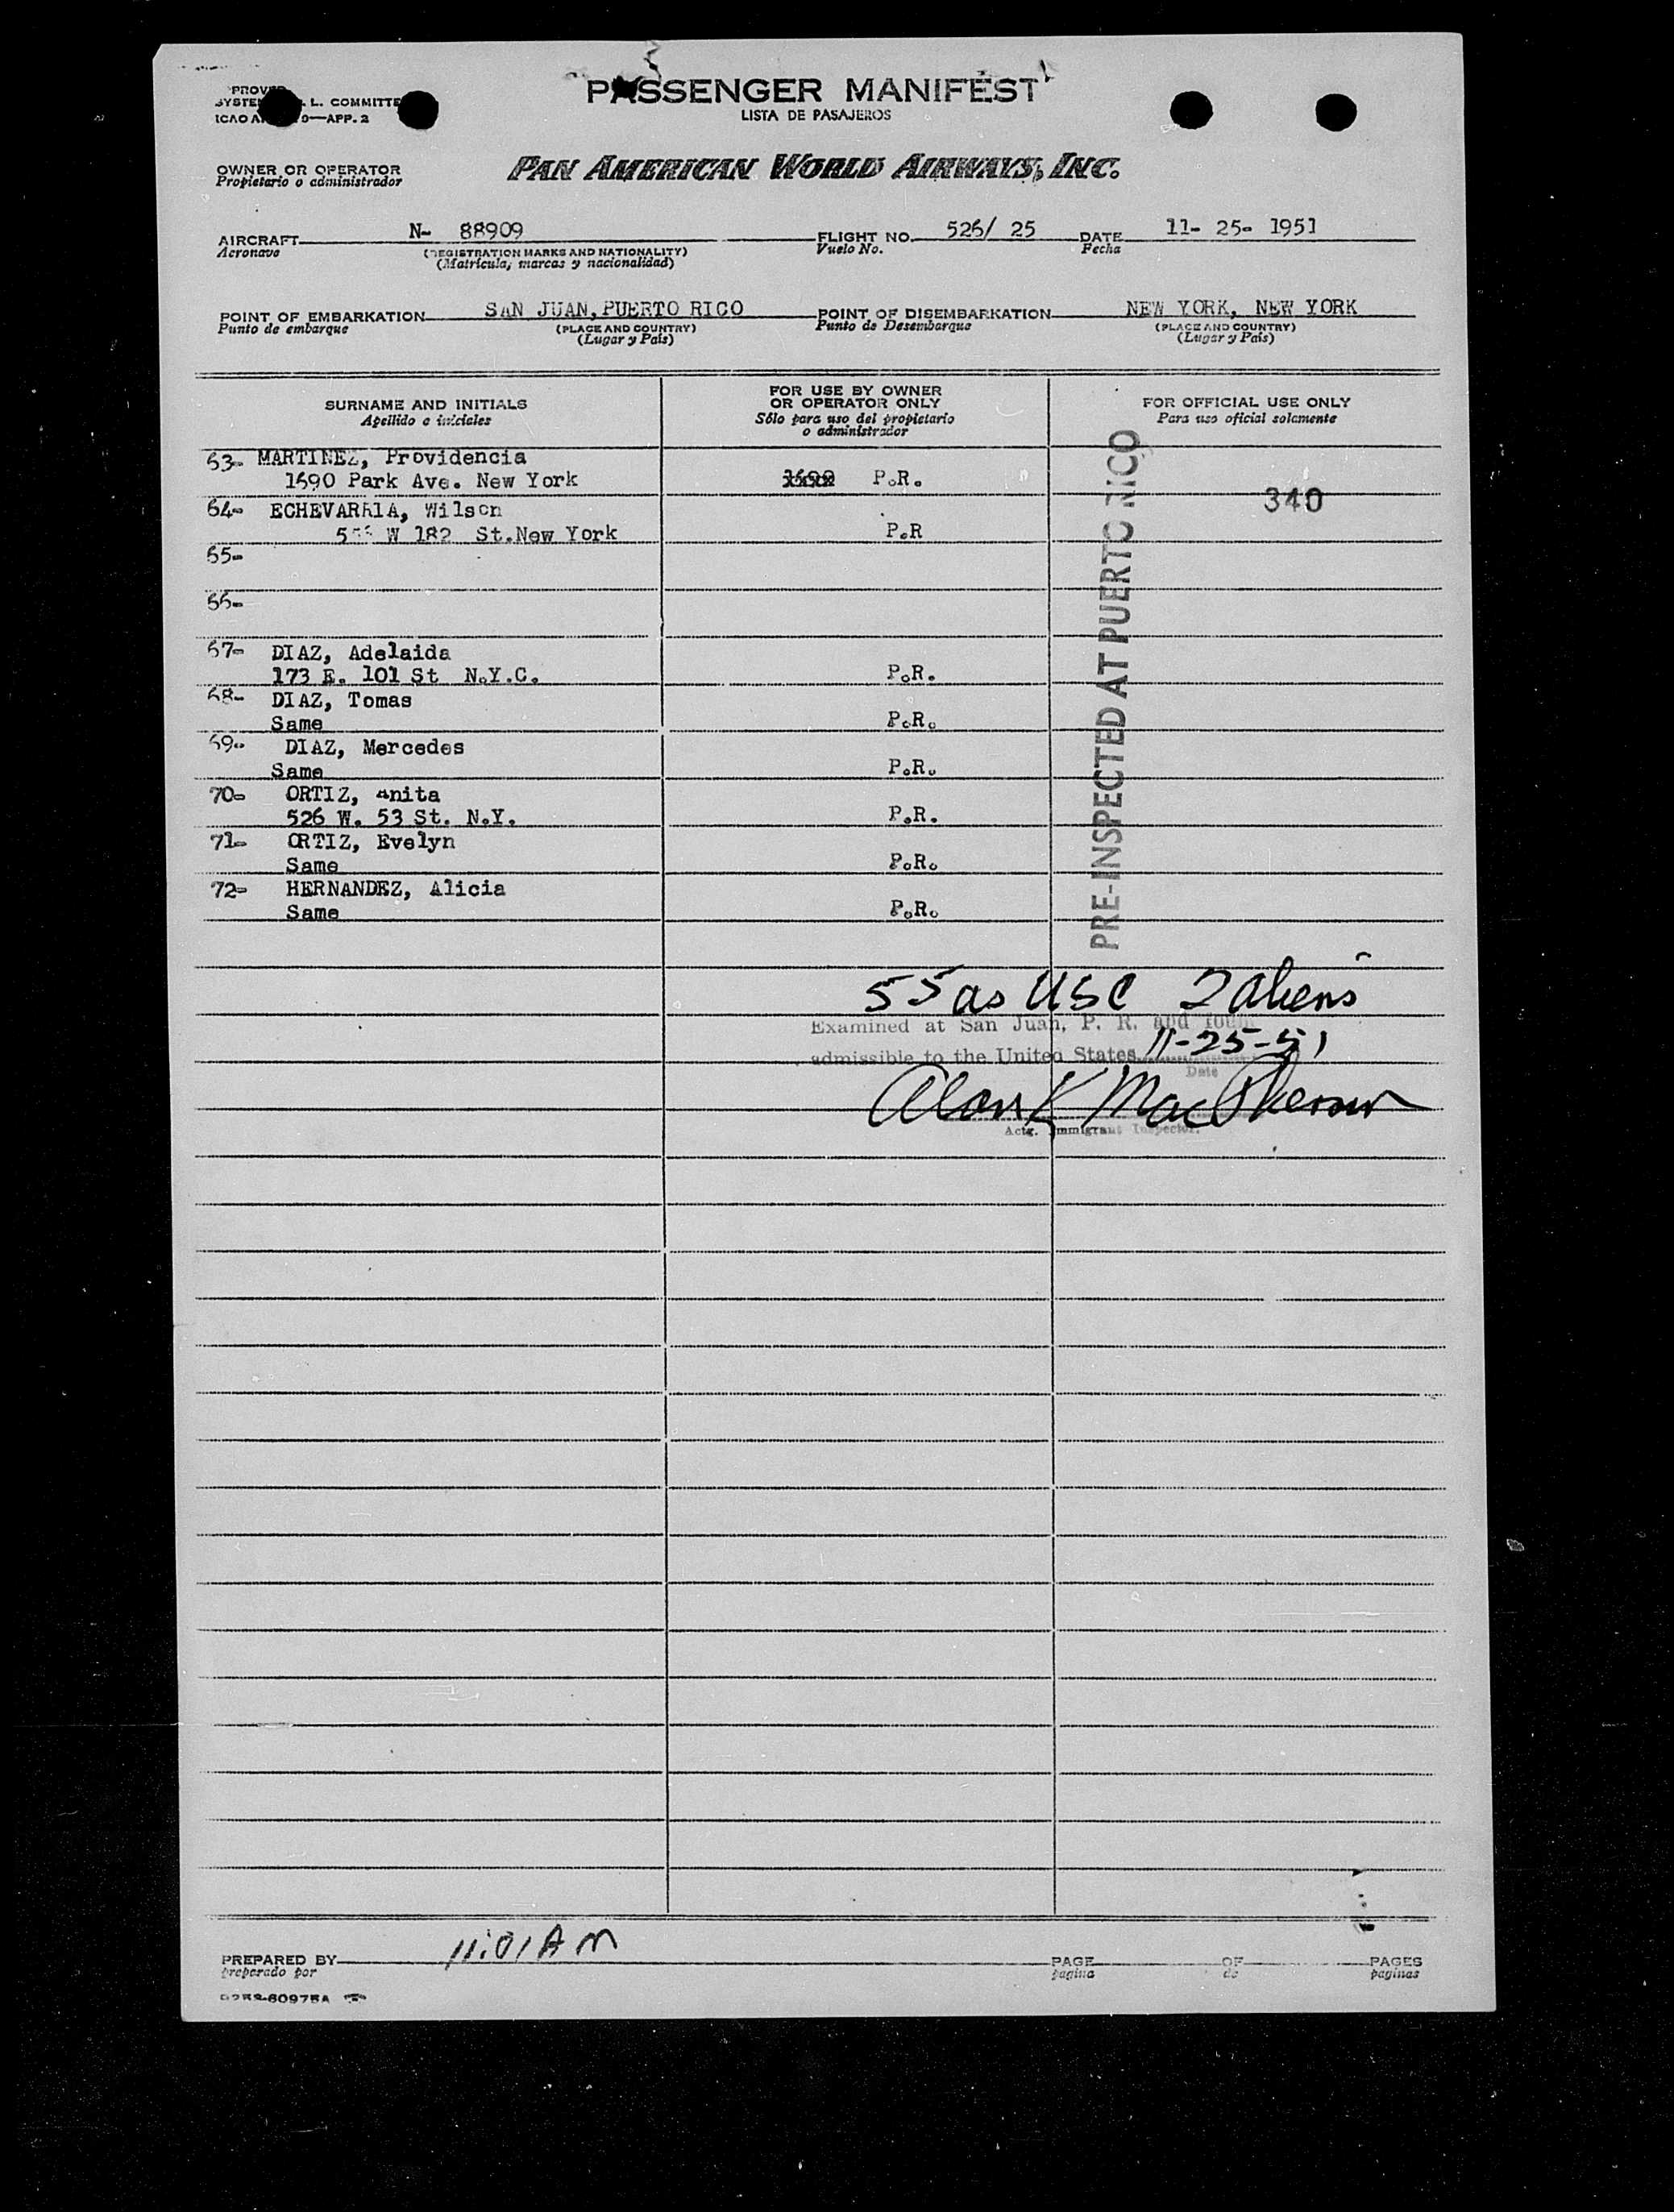 PASSENGER MANIFEST
LISTA DE PASAJEROS
L. COMMITTE
ICAO
9—APP. 2
OWNER OR OPERATOR
Propietario o administrador
PAN AMERICAN WORLD AIRWAYS, INC.
AIRCRAFT N- 88909 FLIGHT NO. 526/ 25 DATE 11- 25- 1951
Aeronave (REGISTRATION MARKS AND NATIONALITY) Vuelo No. Fecha
(Matrícula, marcas y nacionalidad)
POINT OF EMBARKATION SAN JUAN, PUERTO RICO POINT OF DISEMBARKATION NEW YORK, NEW YORK
Punto de embarque (PLACE AND COUNTRY) Punto de Desembarque (PLACE AND COUNTRY)
(Lugar y País) (Lugar y País)
SURNAME AND INITIALS
Apellido e iniciales
FOR USE BY OWNER
OR OPERATOR ONLY
Sólo para uso del propietario
o administrador
FOR OFFICIAL USE ONLY
Para uso oficial solamente
63- MARTINEZ, Providencia
1690 Park Ave. New York P.R.
340
64- ECHEVARRIA, Wilson
W 182 St. New York P.R
65-
66-
67- DIAZ, Adelaida
173 E. 101 St N.Y.C. P.R.
68- DIAZ, Tomas
Same P.R.
69- DIAZ, Mercedes
Same P.R.
70- ORTIZ, Anita
526 W. 53 St. N.Y. P.R.
71- ORTIZ, Evelyn
Same P.R.
72- HERNANDEZ, Alicia
Same P.R.
PRE-INSPECTED AT PUERTO RICO
55 as USC 2 aliens
Examined at San Juan, P. R. and found
admissible to the United States 11-25-51
Date
Alan K MacPherson
Actg. Immigrant Inspector.
PREPARED BY 11:01 AM PAGE OF PAGES
preparado por pagina de paginas